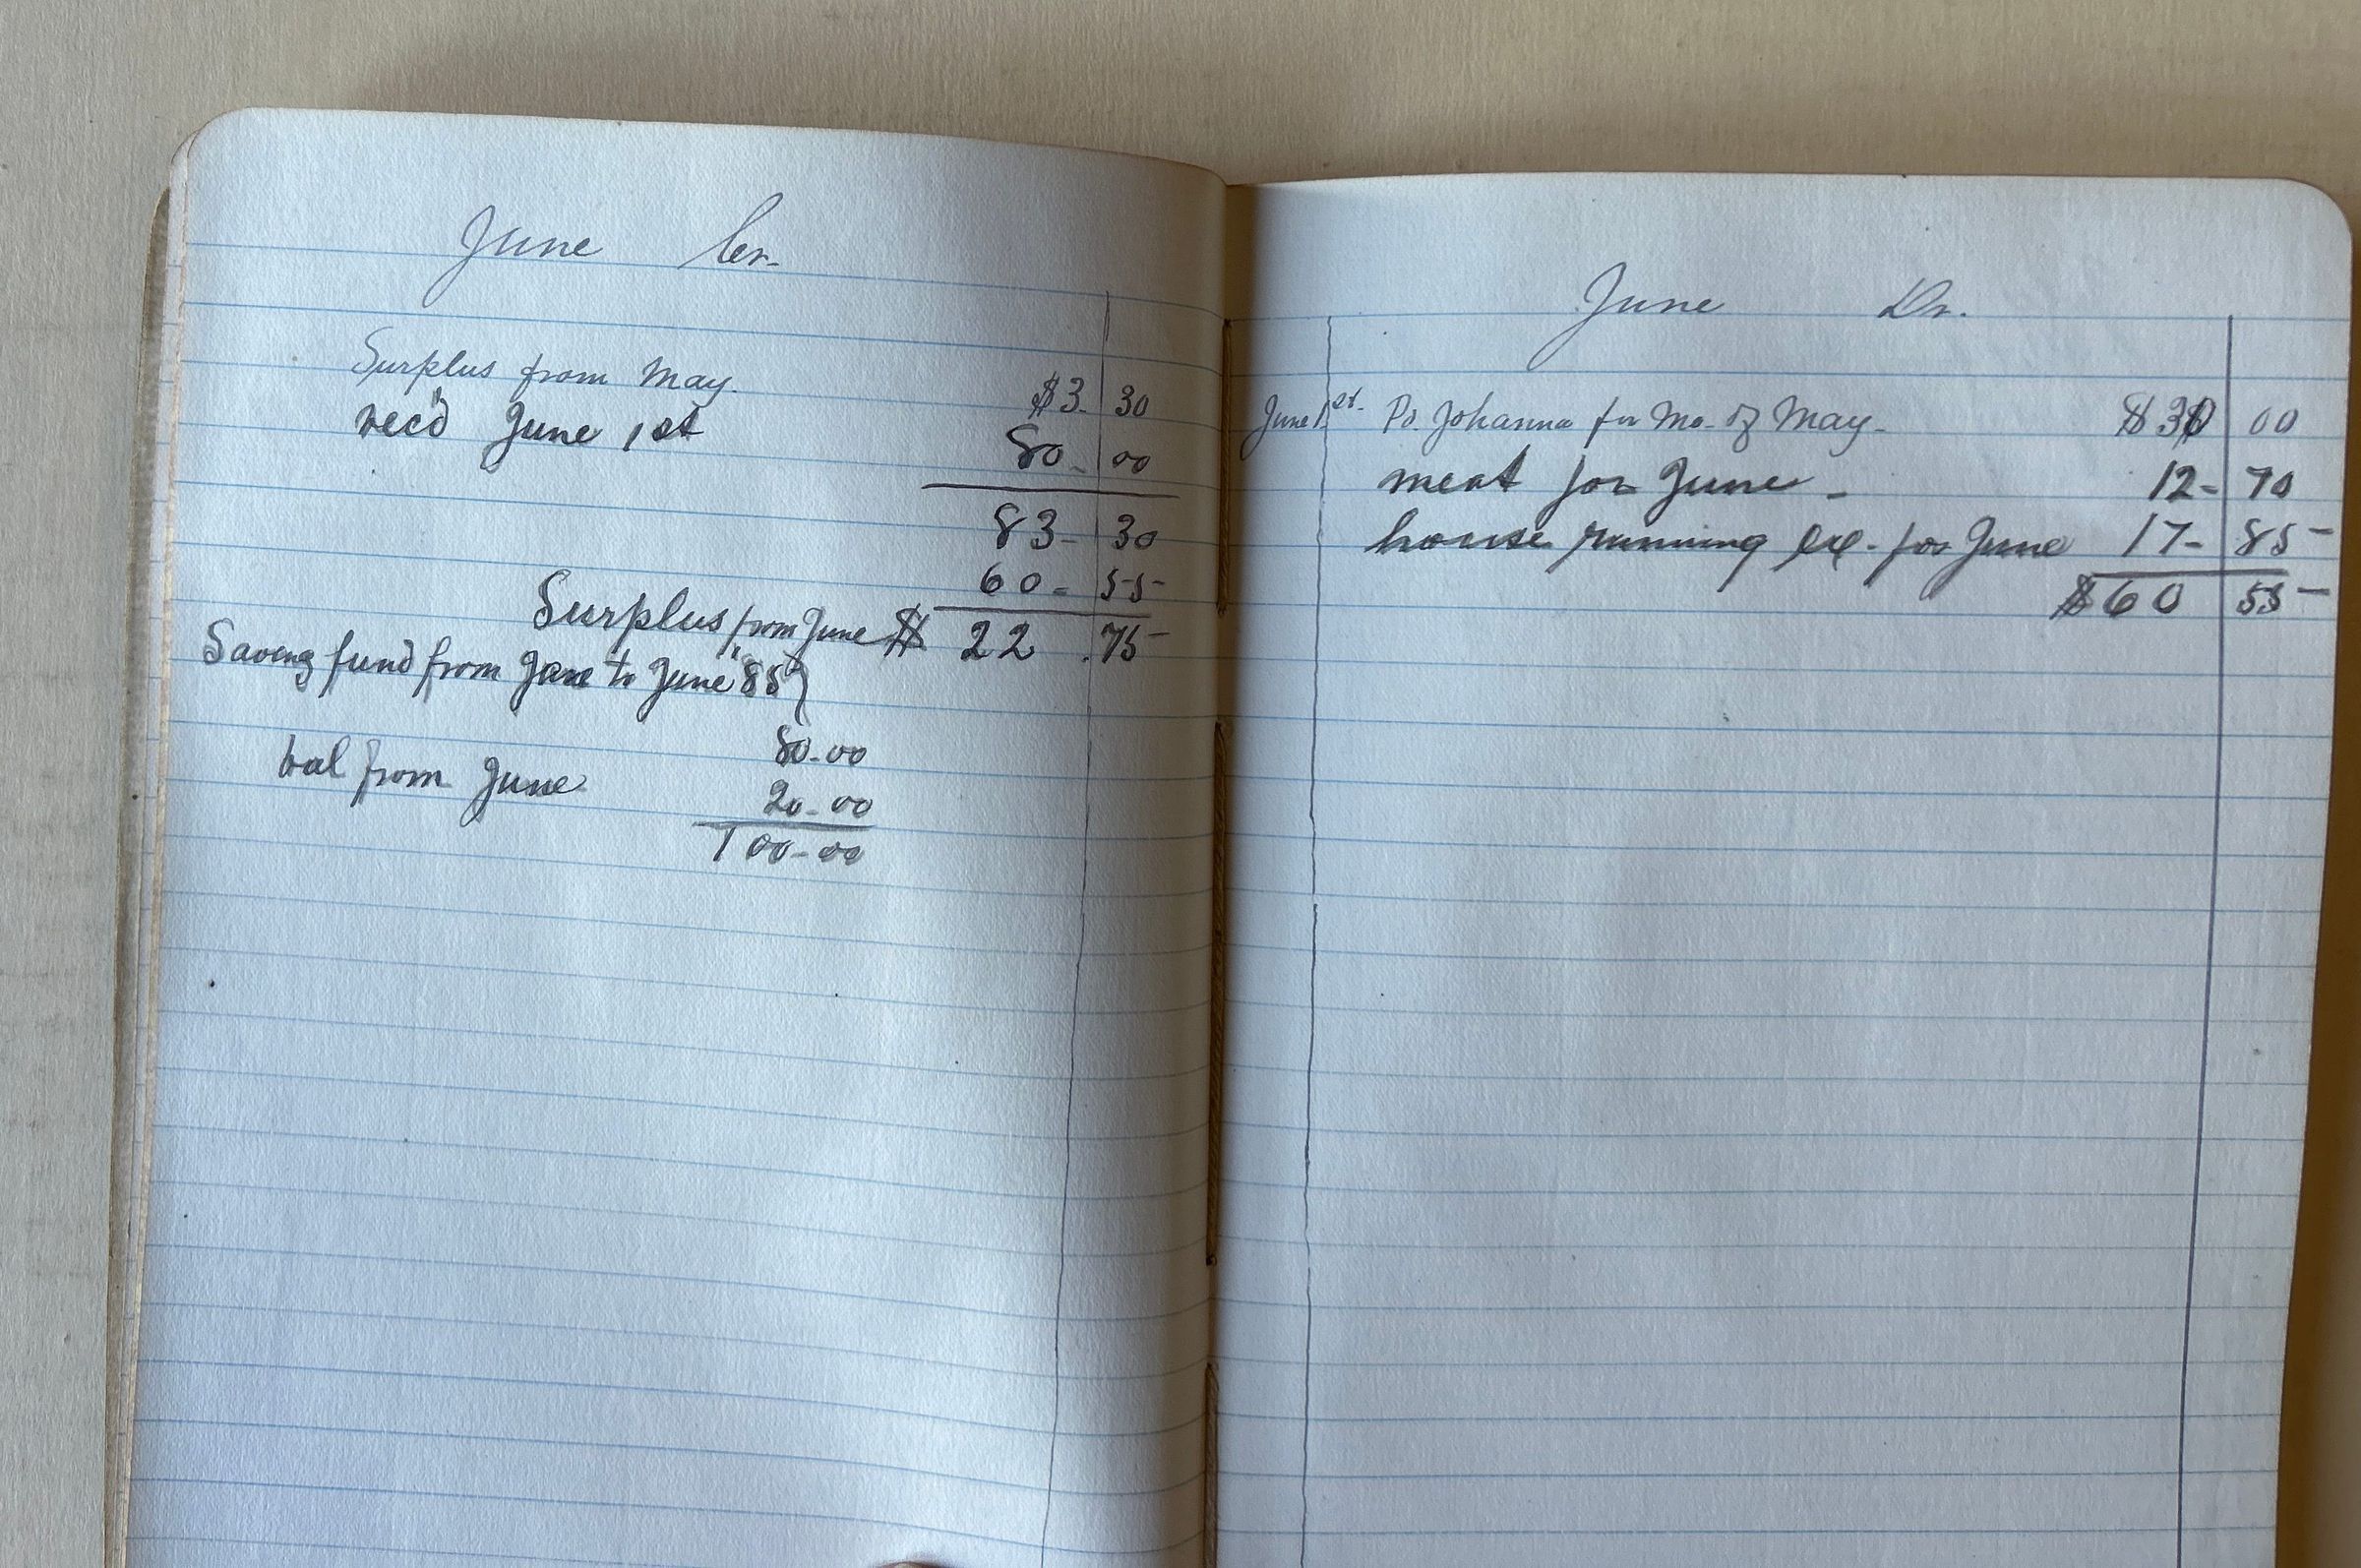 June Cr.
Surplus from May. $3. 30
rec'd June 1st 80- 00
83- 30
60- 55
Surplus from June $ 22 .75
Saving fund from Jan to June "85"
80-00
bal from June 20-00
100-00
June Dr.
June 1st. Pd. Johanna for Mo. of May- $30 00
meat for June - 12- 70
house running ex. for June 17- 85
$60 55